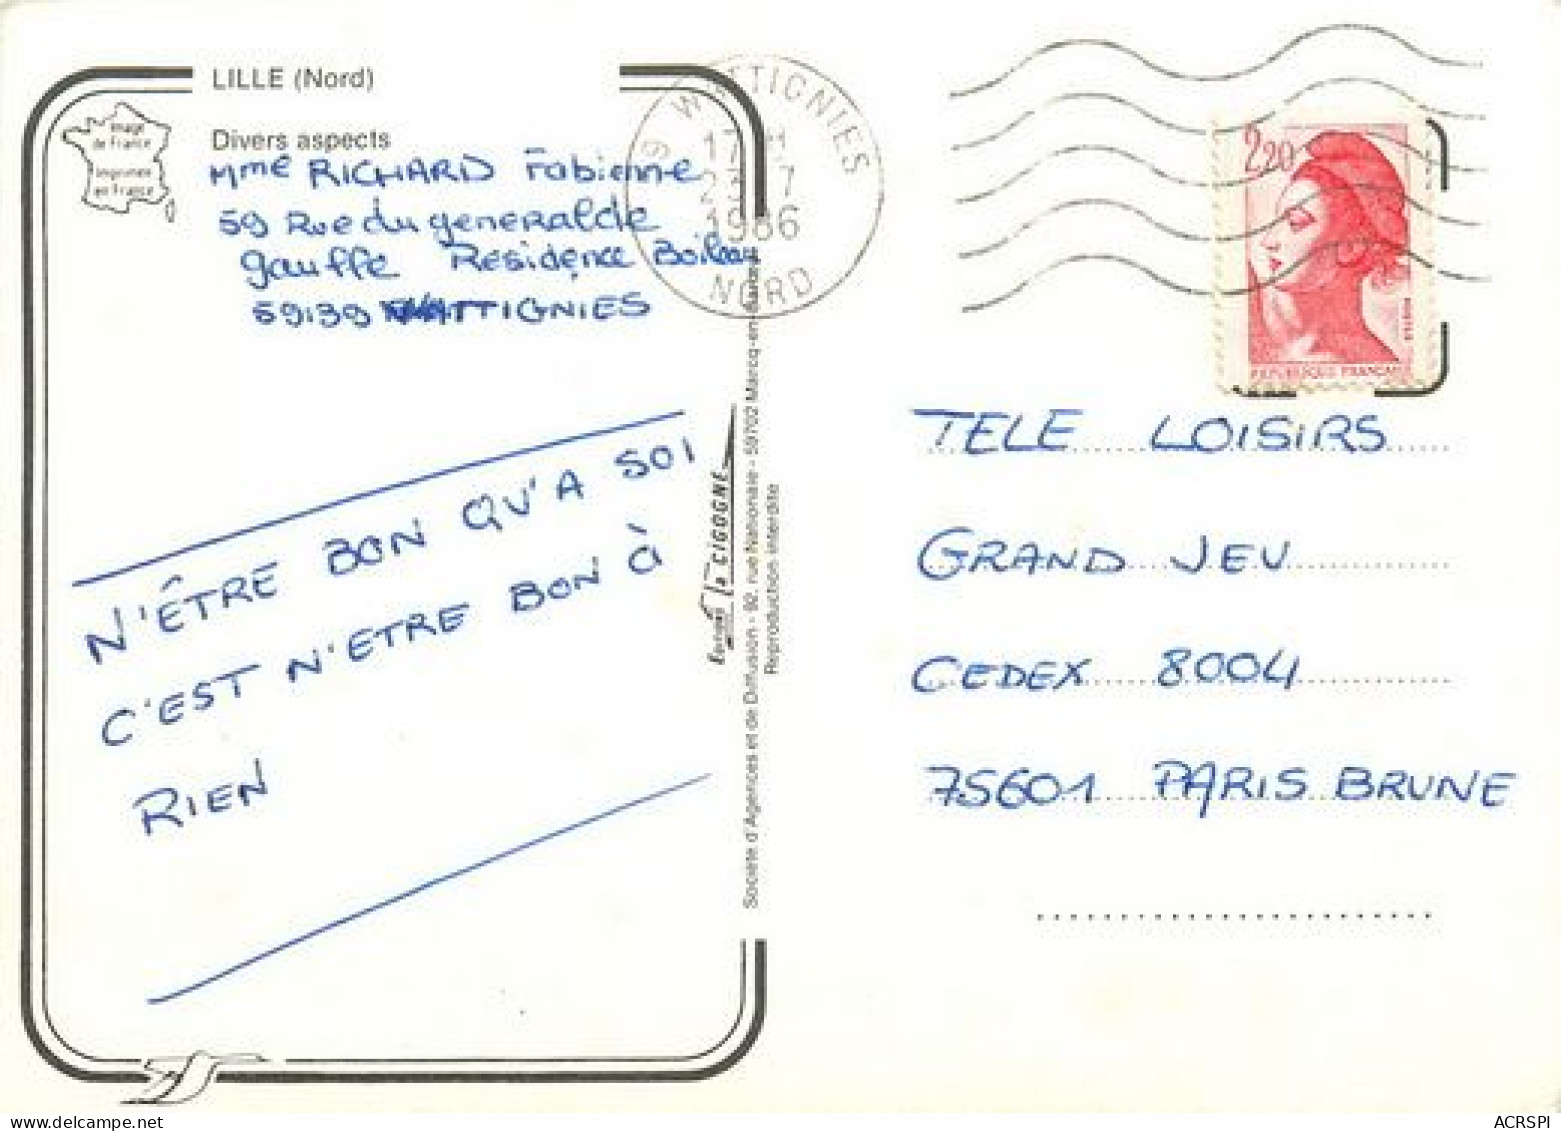 LILLE (Nord)
Divers aspects
Image
de France
Imprimée
en France
Mme RICHARD Fabienne
59 Rue du generalde
gauffe Residence Boileau
59139 WATTIGNIES
N'ÊTRE BON QU'A SOI
C'EST N'ETRE BON à
RIEN
WATTIGNIES
1986
NORD
2,20
REPUBLIQUE FRANÇAISE
TELE LOISIRS
GRAND JEU
CEDEX 8004
75601 PARIS BRUNE
EDITIONS la CIGOGNE
Société d'Agences et de Diffusion - 92, rue Nationale - 59702 Marcq-en-Barœul
Reproduction interdite
ACRSPI